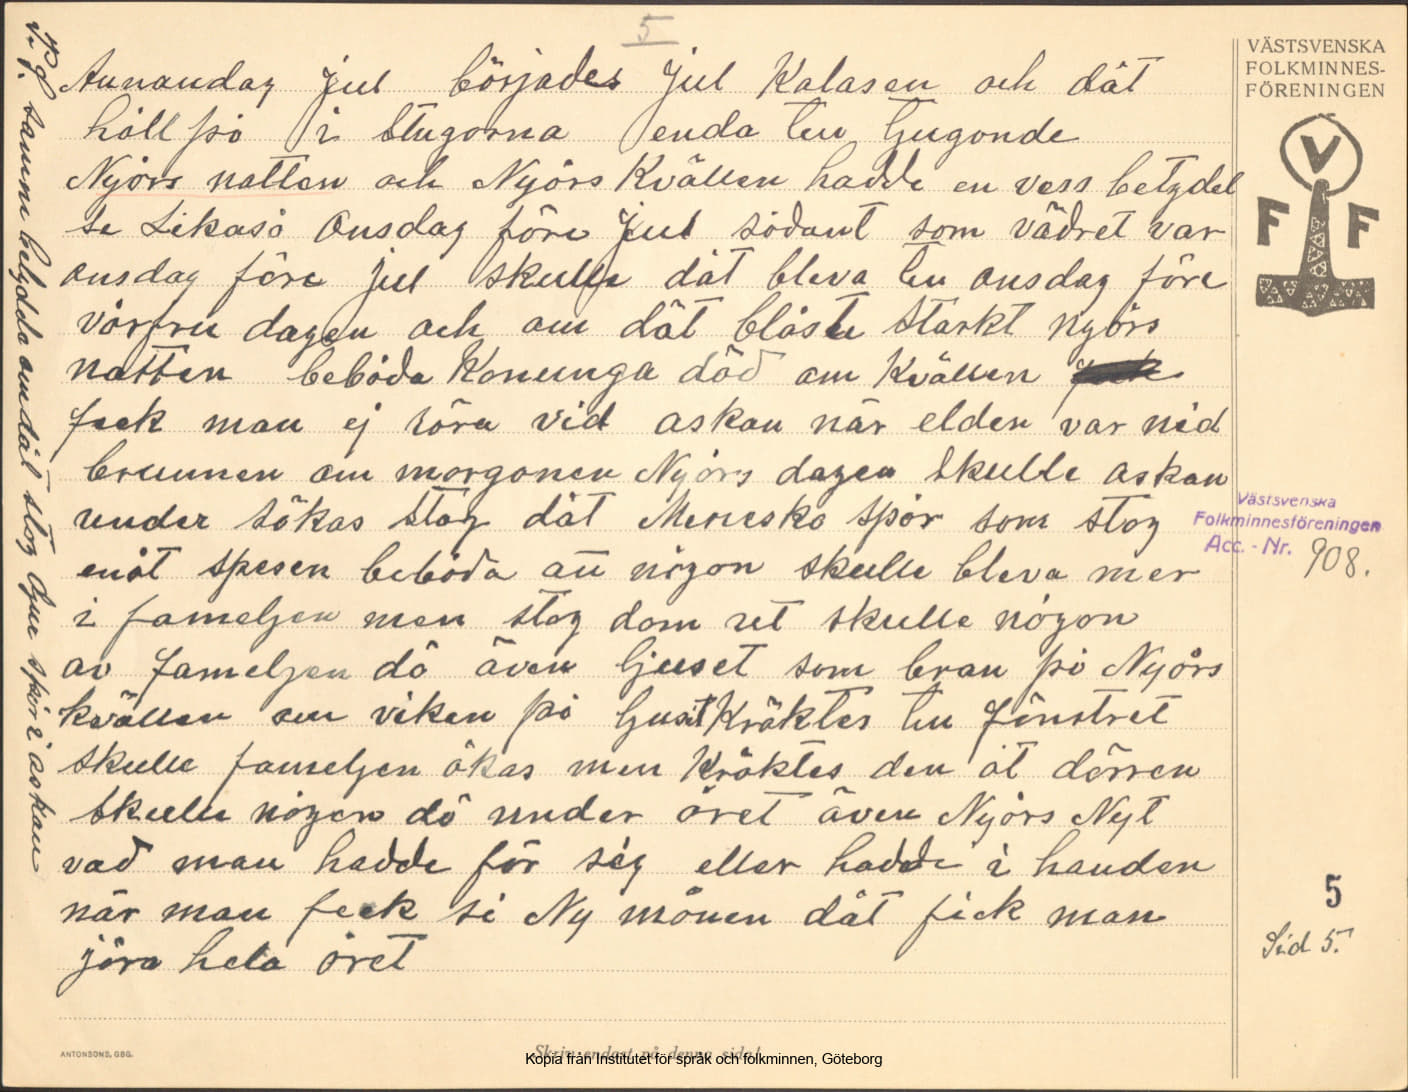 5
Annandag jul börjades jul Kalasen och dät
håll på i stugorna enda ten tjugonde
Nyårs natten och Nyårs Kvällen hadde en vess betydel
se Likaså onsdag före jul sådant som vädret var
onsdag före jul skulle dät bleva ten onsdag före
vårfru dagen och om dät blåste starkt nyårs
natten bebåda Konunga död om Kvällen
feck man ej röra vid askan när elden var nid
brunnen om morgonen Nyårs dagen skulle askan
under sökas stog dät Menesko spår som stog
enåt spesen bebåda att någon skulle bleva mer
i fameljen men stog dom ut skulle någon
av fameljen dö även ljuset som bran på Nyårs
kvällen om viken på ljuset Kräktes ten fönstret
skulle fameljen ökas men Kröktes den åt dörren
skulle någon dö under året även Nyårs Nyt
vad man hadde för sig eller hadde i handen
när man feck si Ny månen dät fick man
jöra hela året
samma betydde om dät stog djur spår i askan
VÄSTSVENSKA
FOLKMINNES-
FÖRENINGEN
V
F F
Västsvenska
Folkminnesföreningen
Acc. - Nr. 908.
5
Sid 5.
ANTONSONS, GBG.
Skriv endast på denna sida!
Kopia från Institutet för språk och folkminnen, Göteborg